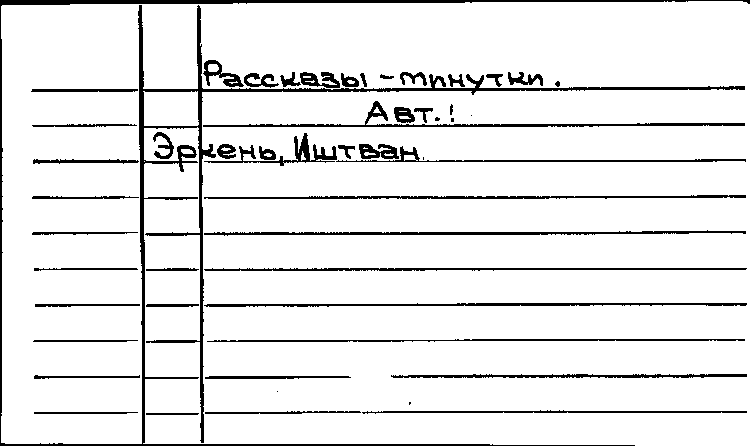 Рассказы-минутки.
Авт.:
Эркень, Иштван